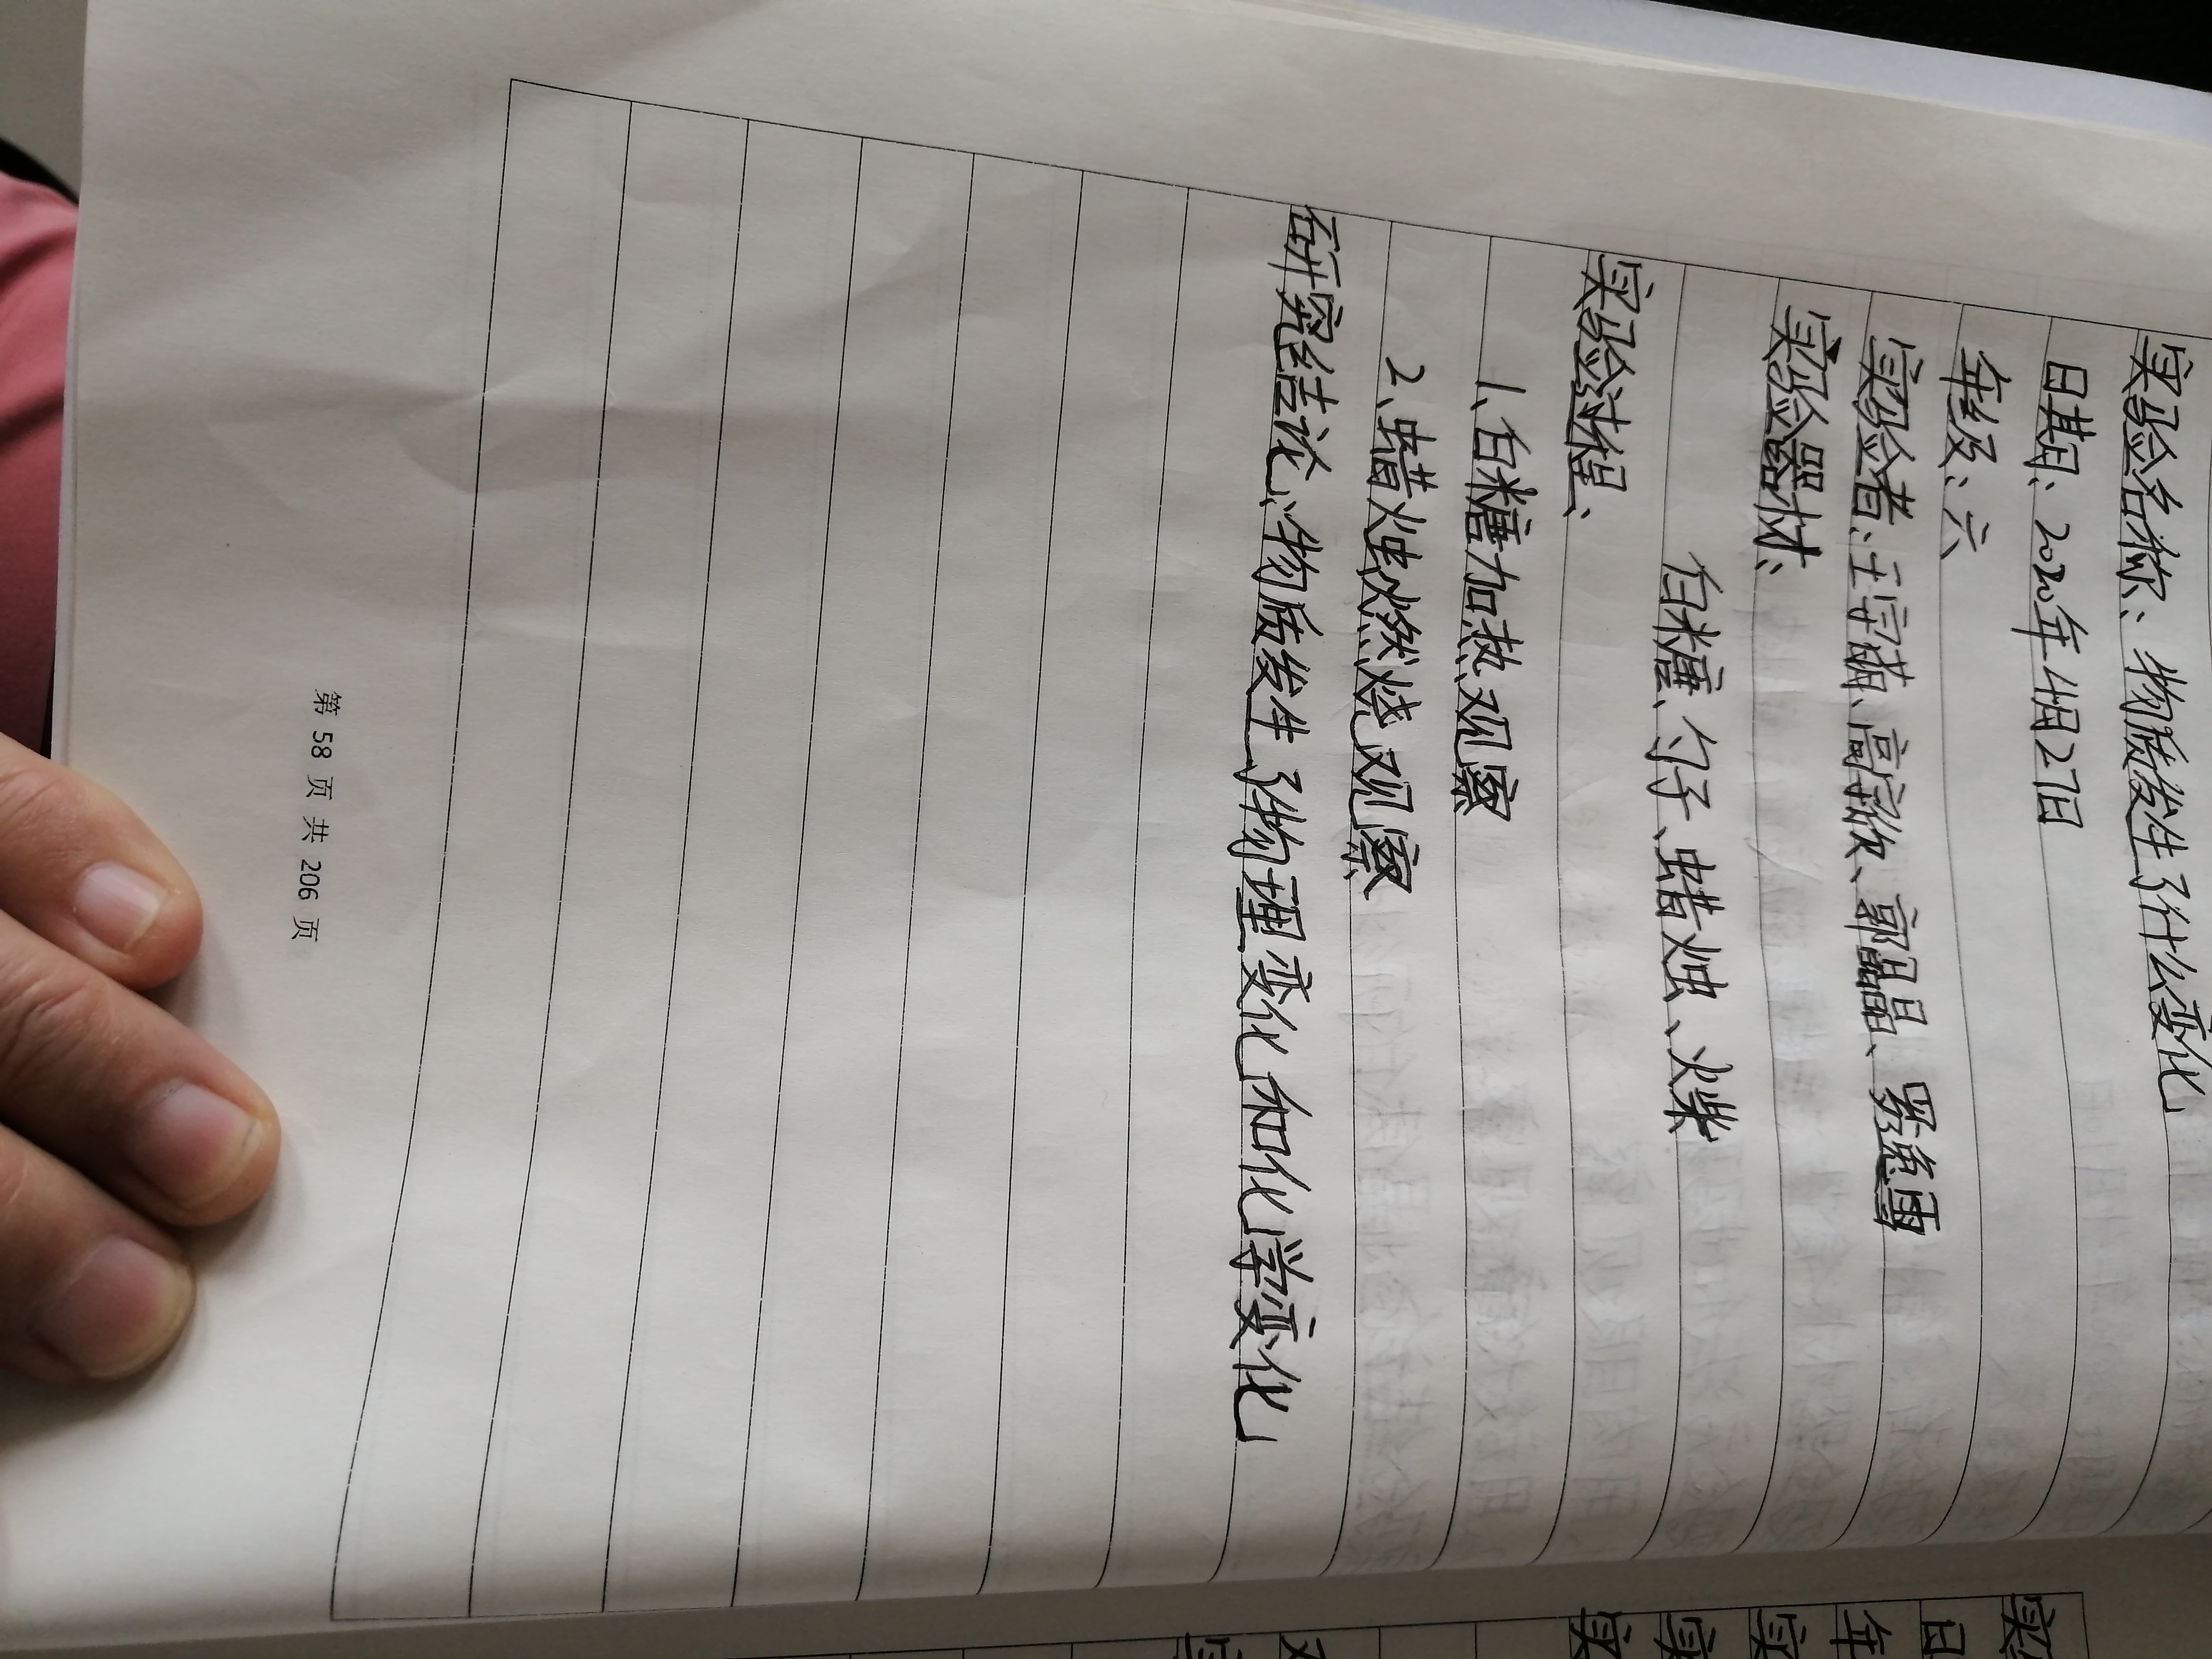 实验名称、物质发生了什么变化
日期、2020年4月27日
年级：六
实验者：王宇涵、高宇欣、郭晶晶、
实验器材、
白糖、勺子、蜡烛、火柴
实验过程、
1、白糖加热观察
2、蜡烛燃烧观察
研究结论、物质发生了物理变化和化学变化
第 58 页 共 206 页